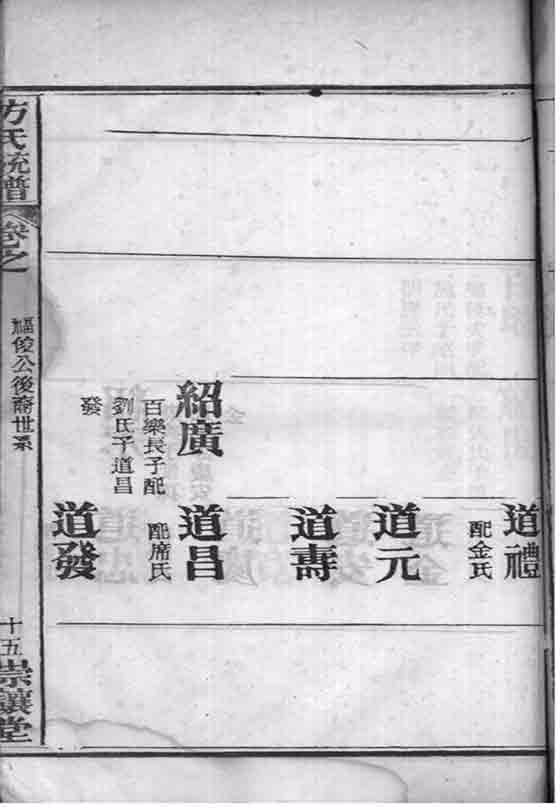 道禮
配金氏
道元
道壽
紹廣
百樂長子配
劉氏子道昌
發
道昌
配席氏
道發
方氏統譜
卷之
福俊公後裔世系
十五
崇讓堂